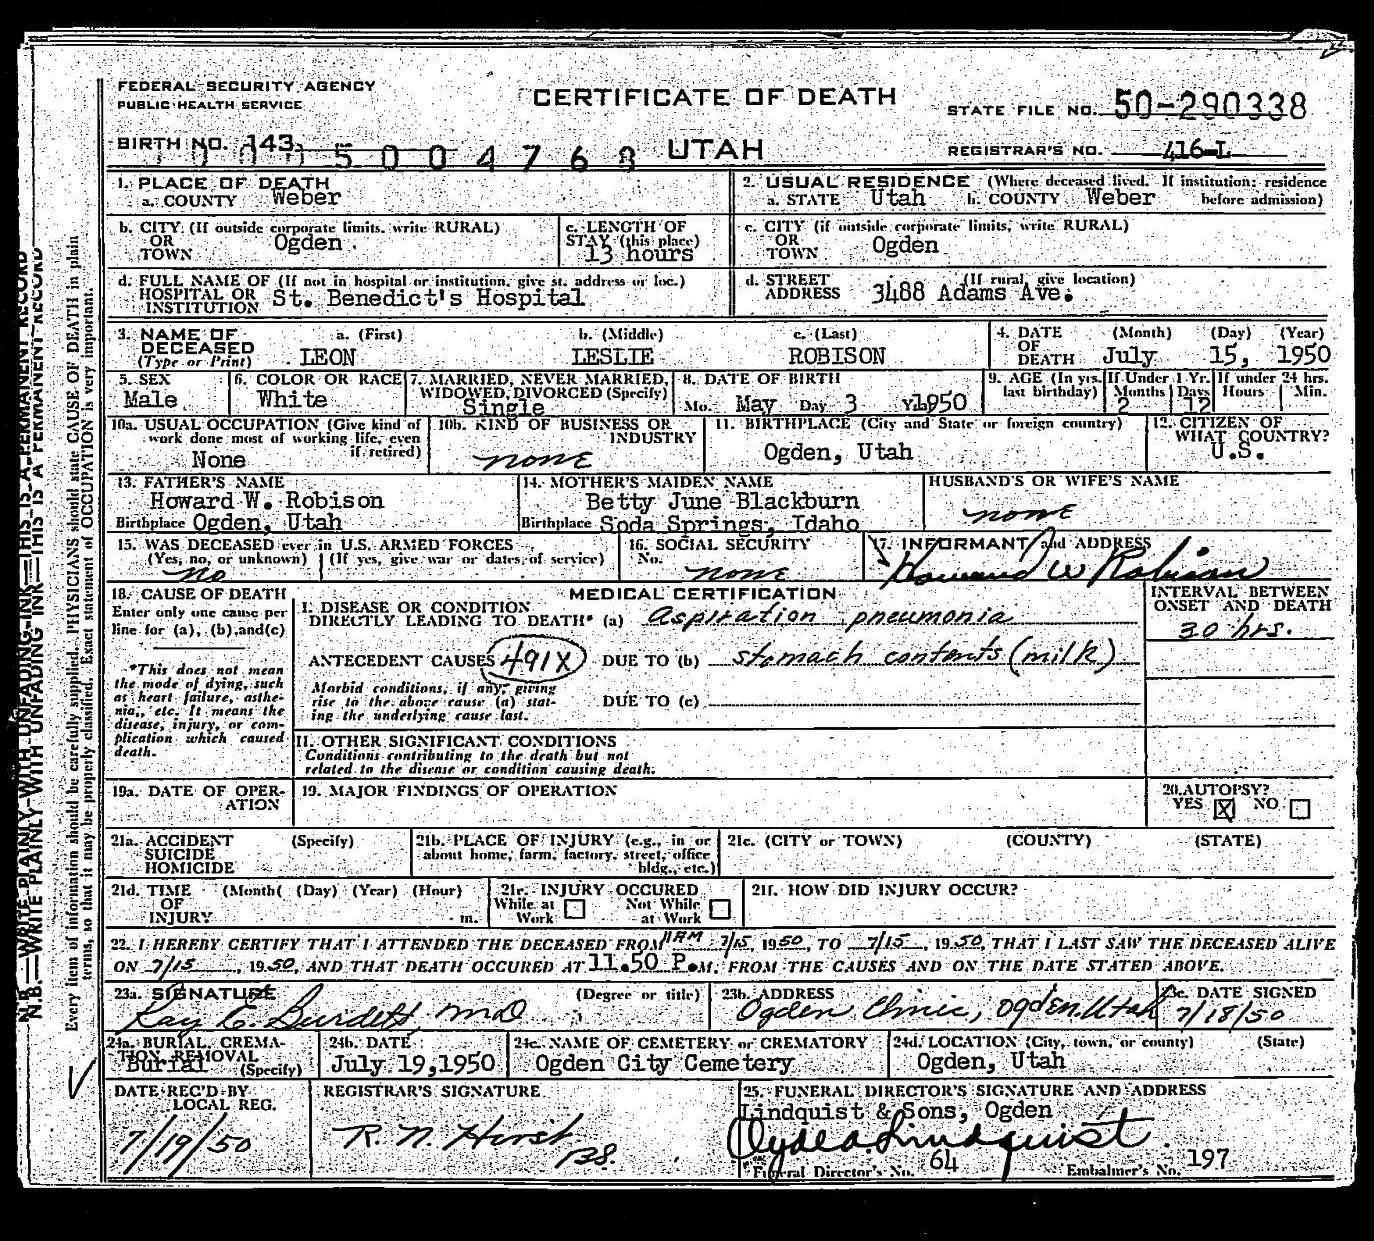 FEDERAL SECURITY AGENCY
PUBLIC HEALTH SERVICE
CERTIFICATE OF DEATH
STATE FILE NO. 50-290338
BIRTH NO. 143
UTAH
REGISTRAR'S NO. 416-L
1. PLACE OF DEATH
a. COUNTY Weber
2. USUAL RESIDENCE (Where deceased lived. If institution: residence
a. STATE Utah b. COUNTY Weber before admission)
b. CITY (If outside corporate limits, write RURAL)
OR
TOWN Ogden
c. LENGTH OF
STAY (this place)
13 hours
c. CITY (if outside corporate limits, write RURAL)
OR
TOWN Ogden
d. FULL NAME OF (If not in hospital or institution, give st. address or loc.)
HOSPITAL OR
INSTITUTION St. Benedict's Hospital
d. STREET (If rural, give location)
ADDRESS 3488 Adams Ave.
3. NAME OF
DECEASED
(Type or Print)
a. (First) b. (Middle) c. (Last)
LEON LESLIE ROBISON
4. DATE (Month) (Day) (Year)
OF
DEATH July 15, 1950
5. SEX
Male
6. COLOR OR RACE
White
7. MARRIED, NEVER MARRIED,
WIDOWED, DIVORCED (Specify)
Single
8. DATE OF BIRTH
Mo. May Day 3 Yr. 1950
9. AGE (In yrs.
last birthday)
If Under 1 Yr.
Months Days
2 12
If under 24 hrs.
Hours Min.
10a. USUAL OCCUPATION (Give kind of
work done most of working life, even
if retired)
None
10b. KIND OF BUSINESS OR
INDUSTRY
none
11. BIRTHPLACE (City and State or foreign country)
Ogden, Utah
12. CITIZEN OF
WHAT COUNTRY?
U.S.
13. FATHER'S NAME
Howard W. Robison
Birthplace Ogden, Utah
14. MOTHER'S MAIDEN NAME
Betty June Blackburn
Birthplace Soda Springs, Idaho
HUSBAND'S OR WIFE'S NAME
none
15. WAS DECEASED ever in U.S. ARMED FORCES
(Yes, no, or unknown) (If yes, give war or dates of service)
no
16. SOCIAL SECURITY
No. none
17. INFORMANT and ADDRESS
Howard W Robison
18. CAUSE OF DEATH
Enter only one cause per
line for (a), (b), and (c)
*This does not mean
the mode of dying, such
as heart failure, asthe-
nia, etc. It means the
disease, injury, or com-
plication which caused
death.
MEDICAL CERTIFICATION
I. DISEASE OR CONDITION
DIRECTLY LEADING TO DEATH* (a) Aspiration pneumonia
ANTECEDENT CAUSES 491X DUE TO (b) stomach contents (milk)
Morbid conditions, if any, giving
rise to the above cause (a) stat-
ing the underlying cause last.
DUE TO (c)
INTERVAL BETWEEN
ONSET AND DEATH
30 hrs.
II. OTHER SIGNIFICANT CONDITIONS
Conditions contributing to the death but not
related to the disease or condition causing death.
19a. DATE OF OPER-
ATION
19. MAJOR FINDINGS OF OPERATION
20. AUTOPSY?
YES X NO
21a. ACCIDENT (Specify)
SUICIDE
HOMICIDE
21b. PLACE OF INJURY (e.g., in or
about home, farm, factory, street, office
bldg., etc.)
21c. (CITY or TOWN) (COUNTY) (STATE)
21d. TIME (Month( (Day) (Year) (Hour)
OF
INJURY m.
21e. INJURY OCCURED
While at Work Not While at Work
21f. HOW DID INJURY OCCUR?
22. I HEREBY CERTIFY THAT I ATTENDED THE DECEASED FROM 11AM 7/15, 1950, TO 7/15, 1950, THAT I LAST SAW THE DECEASED ALIVE
ON 7/15, 1950, AND THAT DEATH OCCURED AT 11.50 P.M. FROM THE CAUSES AND ON THE DATE STATED ABOVE.
23a. SIGNATURE (Degree or title)
Ray E. Burdett, MD
23b. ADDRESS
Ogden Clinic, Ogden, Utah
23c. DATE SIGNED
7/18/50
24a. BURIAL, CREMA-
TION, REMOVAL
Burial (Specify)
24b. DATE
July 19, 1950
24c. NAME OF CEMETERY or CREMATORY
Ogden City Cemetery
24d. LOCATION (City, town, or county) (State)
Ogden, Utah
DATE REC'D BY
LOCAL REG.
7/19/50
REGISTRAR'S SIGNATURE
R. N. Hirst
BB.
25. FUNERAL DIRECTOR'S SIGNATURE AND ADDRESS
Lindquist & Sons, Ogden
Clyde A. Lindquist
Funeral Director's No. 64 Embalmer's No. 197
N.B.—WRITE PLAINLY WITH UNFADING INK—THIS IS A PERMANENT RECORD
Every item of information should be carefully supplied. PHYSICIANS should state CAUSE OF DEATH in plain
terms, so that it may be properly classified. Exact statement of OCCUPATION is very important.